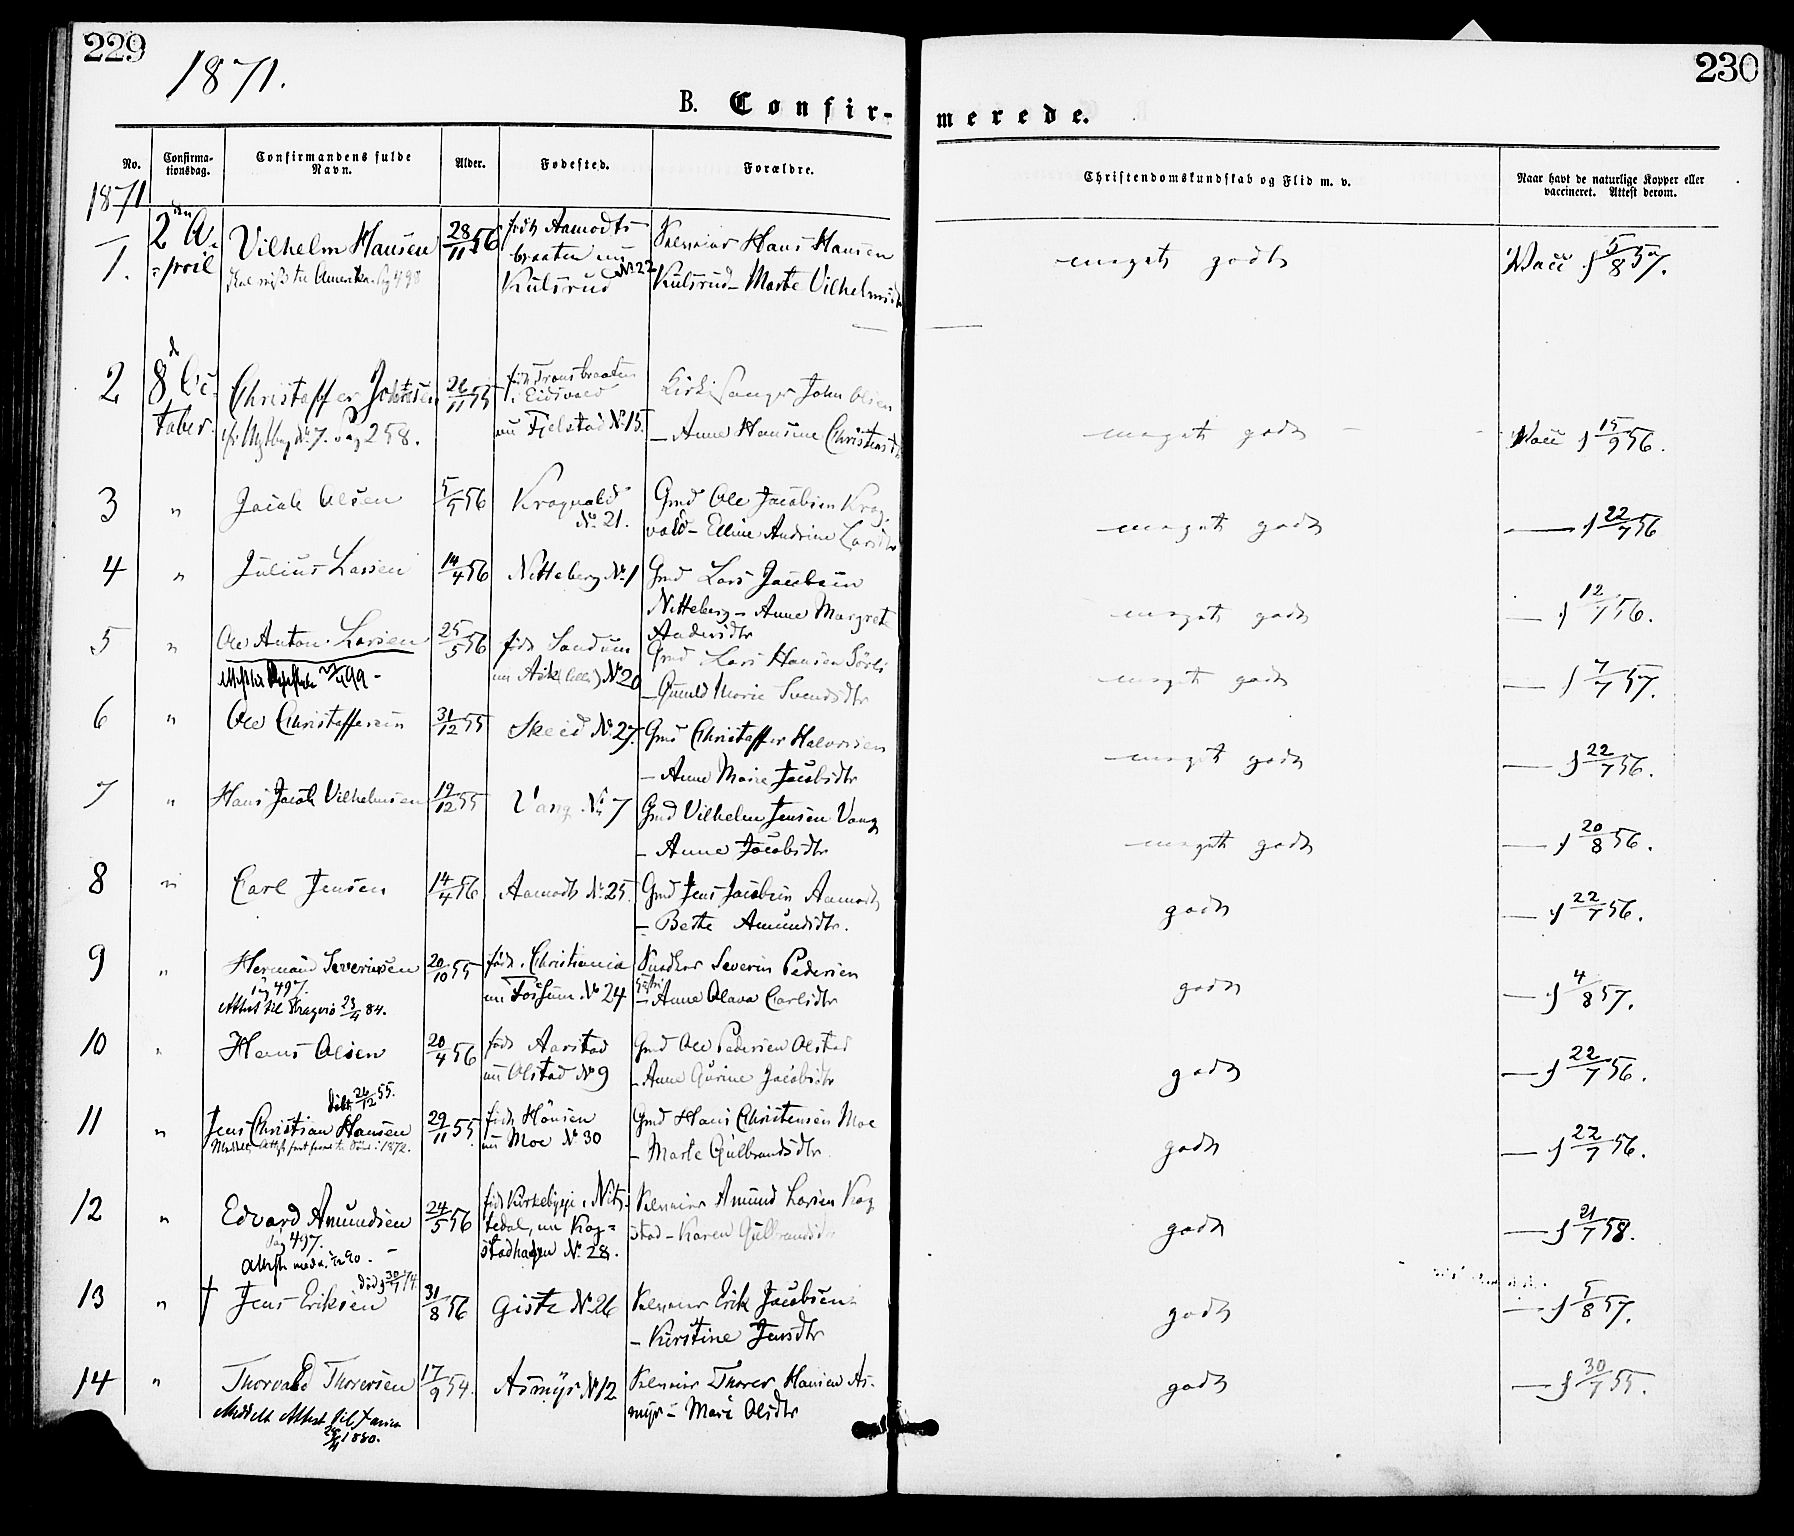 229
1871.
B. Confir-
merede.
230
No.
Confirma-
tionsdag.
Confirmandens fulde
Navn.
Alder.
Fødested.
Forældre.
Christendomskundskab og Flid m. v.
Naar havt de naturlige Kopper eller
vaccineret. Attest derom.
1871
1.
2den A-
pril
Vilhelm Hansen
til Amerika Pag 498
28/11 56
født Aamodts-
braaten nu
Kulsrud No 22
Selveier Hans Hansen
Kulsrud - Marte Vilhelmsdtr
meget godt
Vacc. 5/8 57.
2
8de Oc-
tober.
Christoffer Johnsen
No 7. Pag 258.
26/11 55
født Transbraaten
i Eidsvold
nu Fjelstad No 15.
Kirkesanger John Olsen
- Anne Hansine Christiansdtr
meget godt
Vacc 15/9 56.
3
"
Jacob Olsen
5/5 56
Kragvold
No 21.
Gmd Ole Jacobsen Krag-
vold - Elline Andrine Larsdtr
meget godt
— 22/7 56
4
"
Julius Larsen
14/4 56
Nitteberg No 1
Gmd Lars Jacobsen
Nitteberg - Anne Margrete
Andersdtr
meget godt
— 12/7 56.
5
"
Ole Anton Larsen
99 -
25/5 56
født Sandum
nu Ask No 20
Gmd Lars Hansen Sörli
- Gunild Marie Svendsdtr
meget godt
— 7/7 57.
6
"
Ole Christoffersen
31/12 55
Skeid No 27.
Gmd Christoffer Halvorsen
- Anne Marie Jacobsdtr
meget godt
— 22/7 56.
7
"
Hans Jacob Vilhelmsen
19/12 55
Vang No 7
Gmd Vilhelm Jensen Vang
- Anne Jacobsdtr
meget godt
— 20/8 56.
8
"
Carl Jensen
14/4 56
Aamodt No 25.
Gmd Jens Jacobsen Aamodt
- Berthe Amundsdtr.
godt
— 22/7 56.
9
"
Hermand Severinsen
Pag 497.
Attest til Kragerö 23/4 84.
20/10 55
født i Christiania
nu Fossum No 24
Snedker Severin Pedersen
- Anne Olava Carlsdtr
godt
— 4/8 57.
10
"
Hans Olsen
20/4 56
født Aarstad
nu Olstad No 9
Gmd Ole Pedersen Olstad
- Anne Gurine Jacobsdtr
godt
— 22/7 56.
11
"
døbt 26/12 55.
Jens Christian Hansen
1872.
29/11 55.
født Hönsen
nu Moe No 30
Gmd Hans Christensen Moe
- Marte Gulbrandsdtr
godt
— 22/7 56.
12
"
Edvard Amundsen
Pag 497.
24/5 56
født Kirkebyeje i Nit-
tedal, nu Rog-
stadhagen No 28.
Selveier Amund Larsen Rog-
stad - Karen Gulbrandsdtr
godt
— 21/7 58.
13
"
†
død 30/7 74.
Jens Eriksen
31/8 56
Giste No 26
Selveier Erik Jacobsen
- Kirstine Jensdtr
godt
— 5/8 57.
14
"
Thorvald Thoresen
Meddelt Attest til
1880.
17/9 54.
Asmyr No 12
Selveier Thorer Hansen As-
myr - Mari Olsdtr
godt
— 30/7 55.